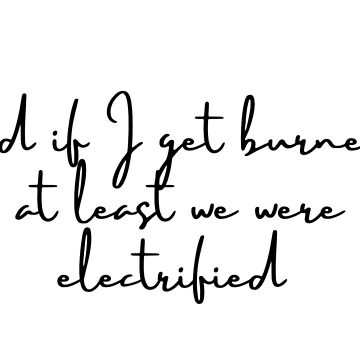 d if I get burne
at least we were
electrified